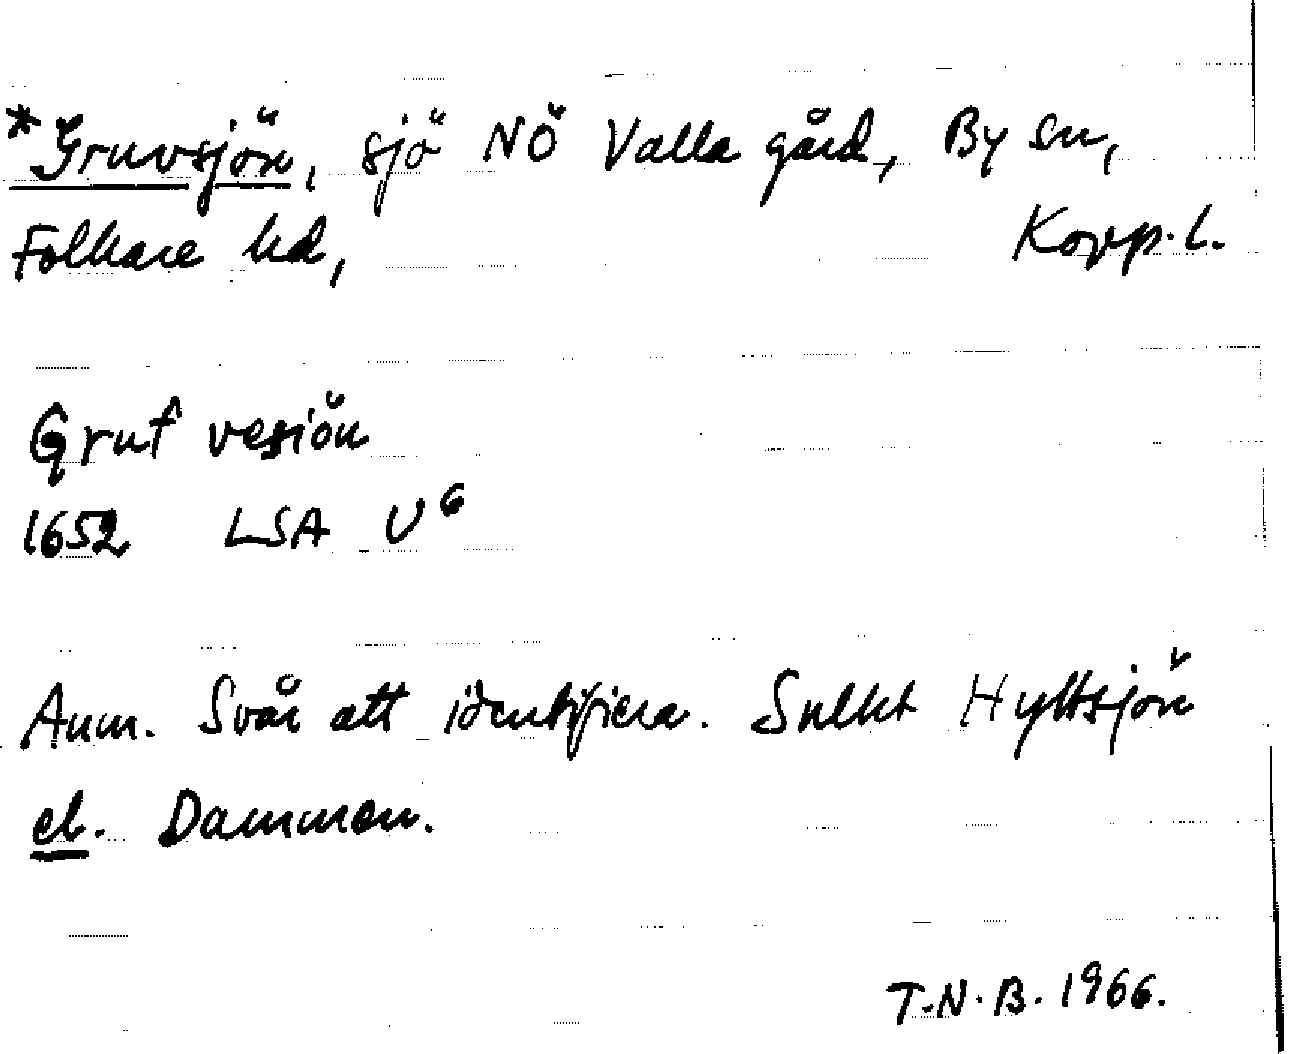 *Gruvsjön, sjö NÖ Valla gård, By sn,
Folkare hd, Kopp. l.
Gruf vesiön
1652 LSA U6
Anm. Svår att identifiera. Snlkt Hyttsjön
el. Dammen.
T.N.B. 1966.